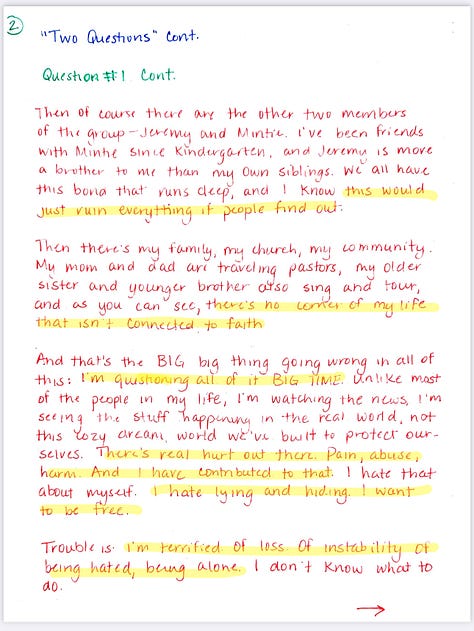 2
"Two Questions" cont.
Question #1 Cont.
Then of course there are the other two members
of the group - Jeremy and Mintie. I've been friends
with Mintie since Kindergarten, and Jeremy is more
a brother to me than my own siblings. We all have
this bond that runs deep, and I know this would
just ruin everything if people find out.
Then there's my family, my church, my community.
My mom and dad are traveling pastors, my older
sister and younger brother also sing and tour,
and as you can see, there's no corner of my life
that isn't connected to faith
And that's the BIG big thing going wrong in all of
this: I'm questioning all of it BIG TIME. Unlike most
of the people in my life, I'm watching the news, I'm
seeing the stuff happening in the real world, not
this cozy dream world we've built to protect our-
selves. There's real hurt out there. Pain, abuse,
harm. And I have contributed to that. I hate that
about myself. I hate lying and hiding. I want
to be free.
Trouble is I'm terrified. Of loss. Of instability. Of
being hated, being alone. I don't know what to
do.
→